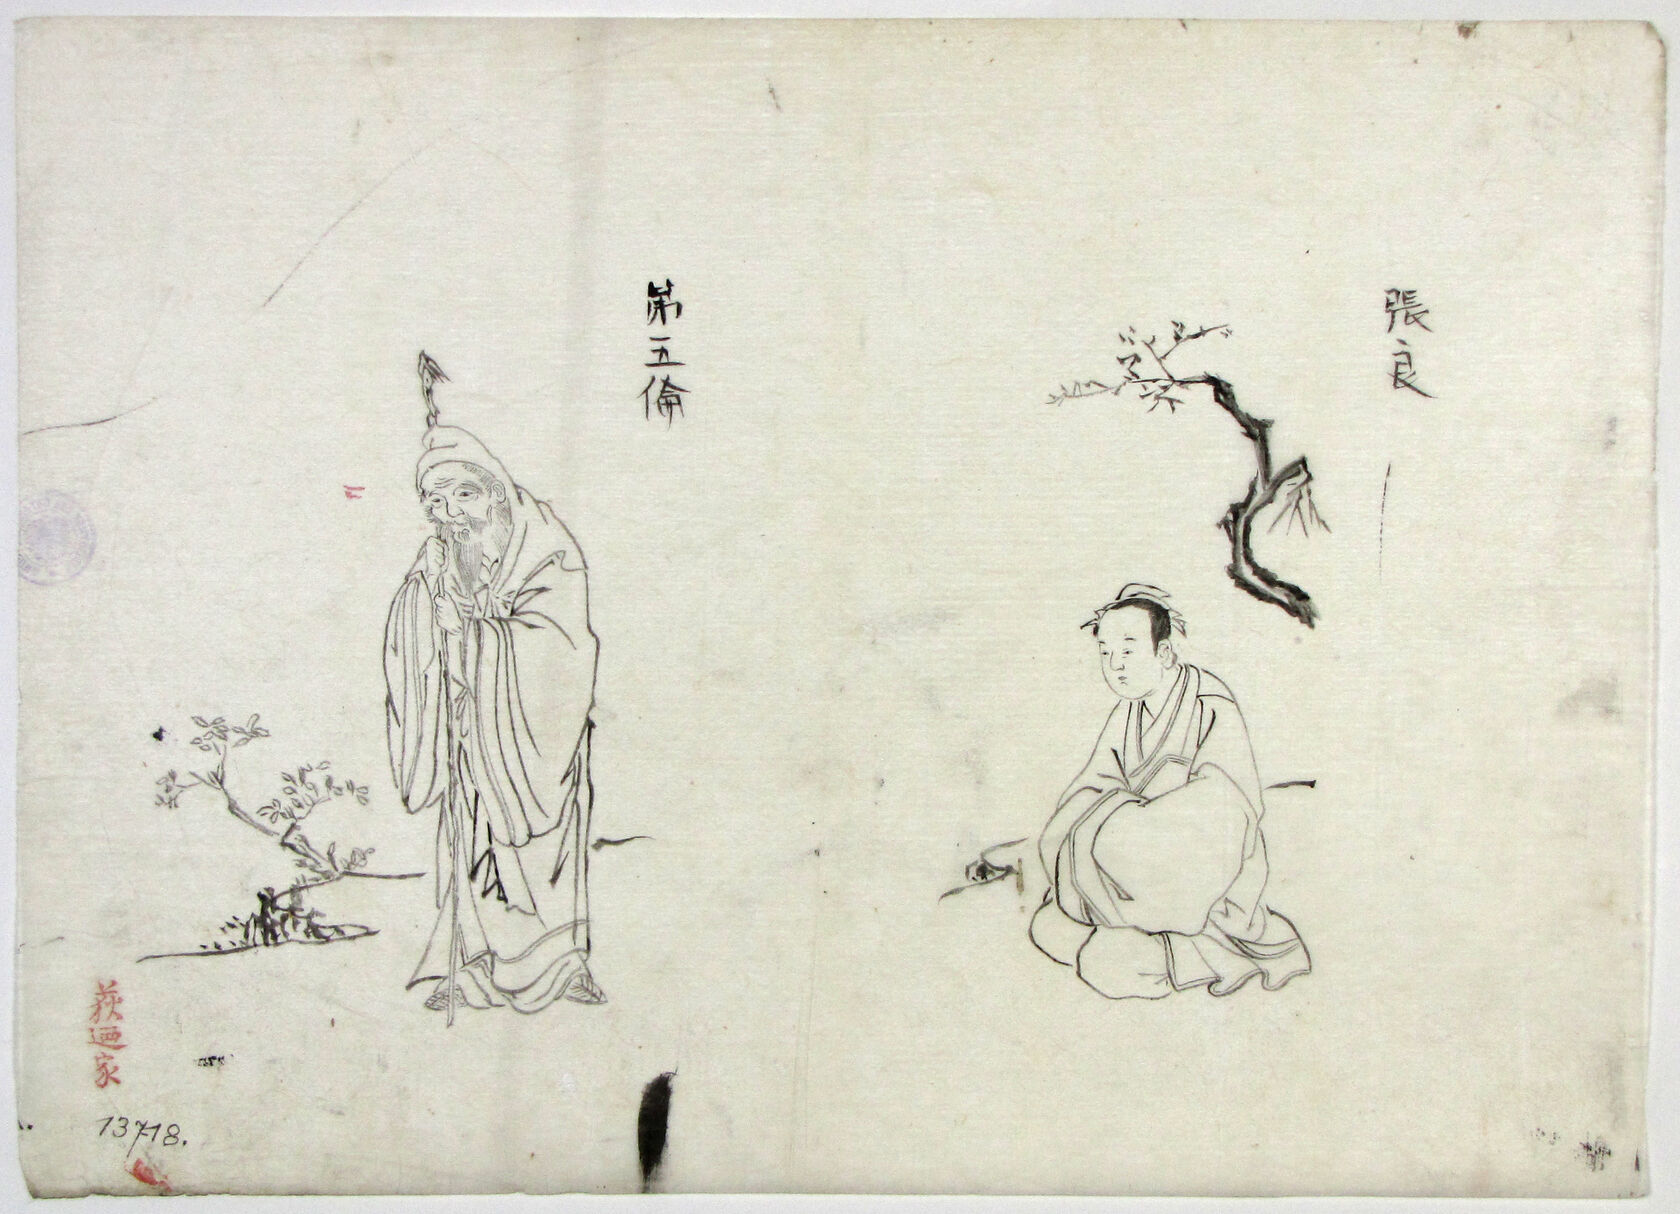 張良
第五倫
荻廼家
13718.